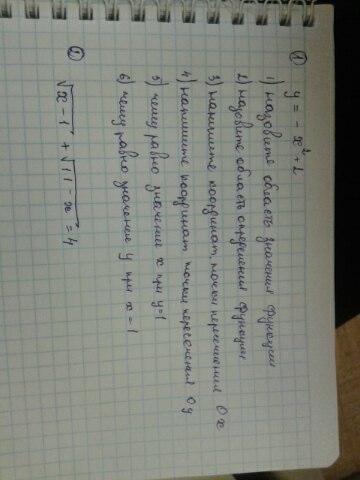 ①
y = - x² + 2
1) назовите область значения функции
2) назовите область определения функции
3) напишите координат. точки пересечения Ox
4) напишите координат точки пересечения Oy
5) чему равно значение x при y=1
6) чему равно значение y при x = 1
②
√x - 1 + √11 - x = 4